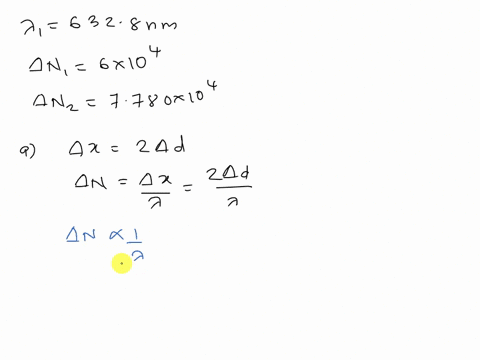 λ₁ = 632.8 nm
ΔN₁ = 6×10⁴
ΔN₂ = 7.780×10⁴
a) Δx = 2Δd
ΔN = Δx/λ = 2Δd/λ
ΔN ∝ 1/λ